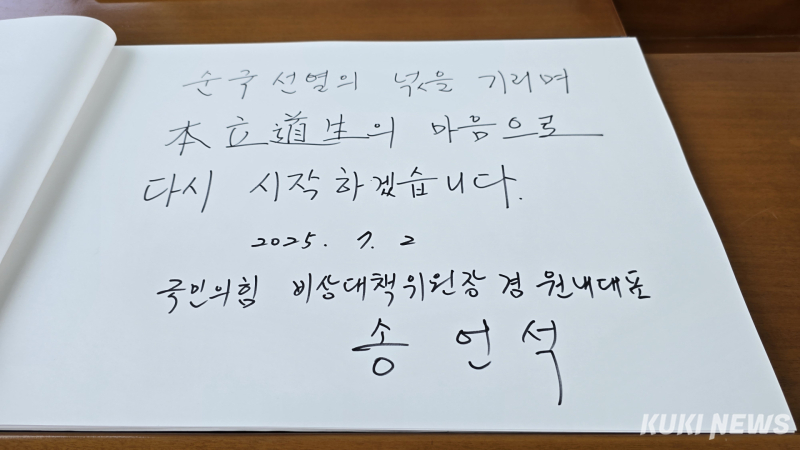 순국선열의 넋을 기리며
本立道生의 마음으로
다시 시작하겠습니다.
2025. 7. 2
국민의힘 비상대책위원장 겸 원내대표
송 언 석
KUKI NEWS